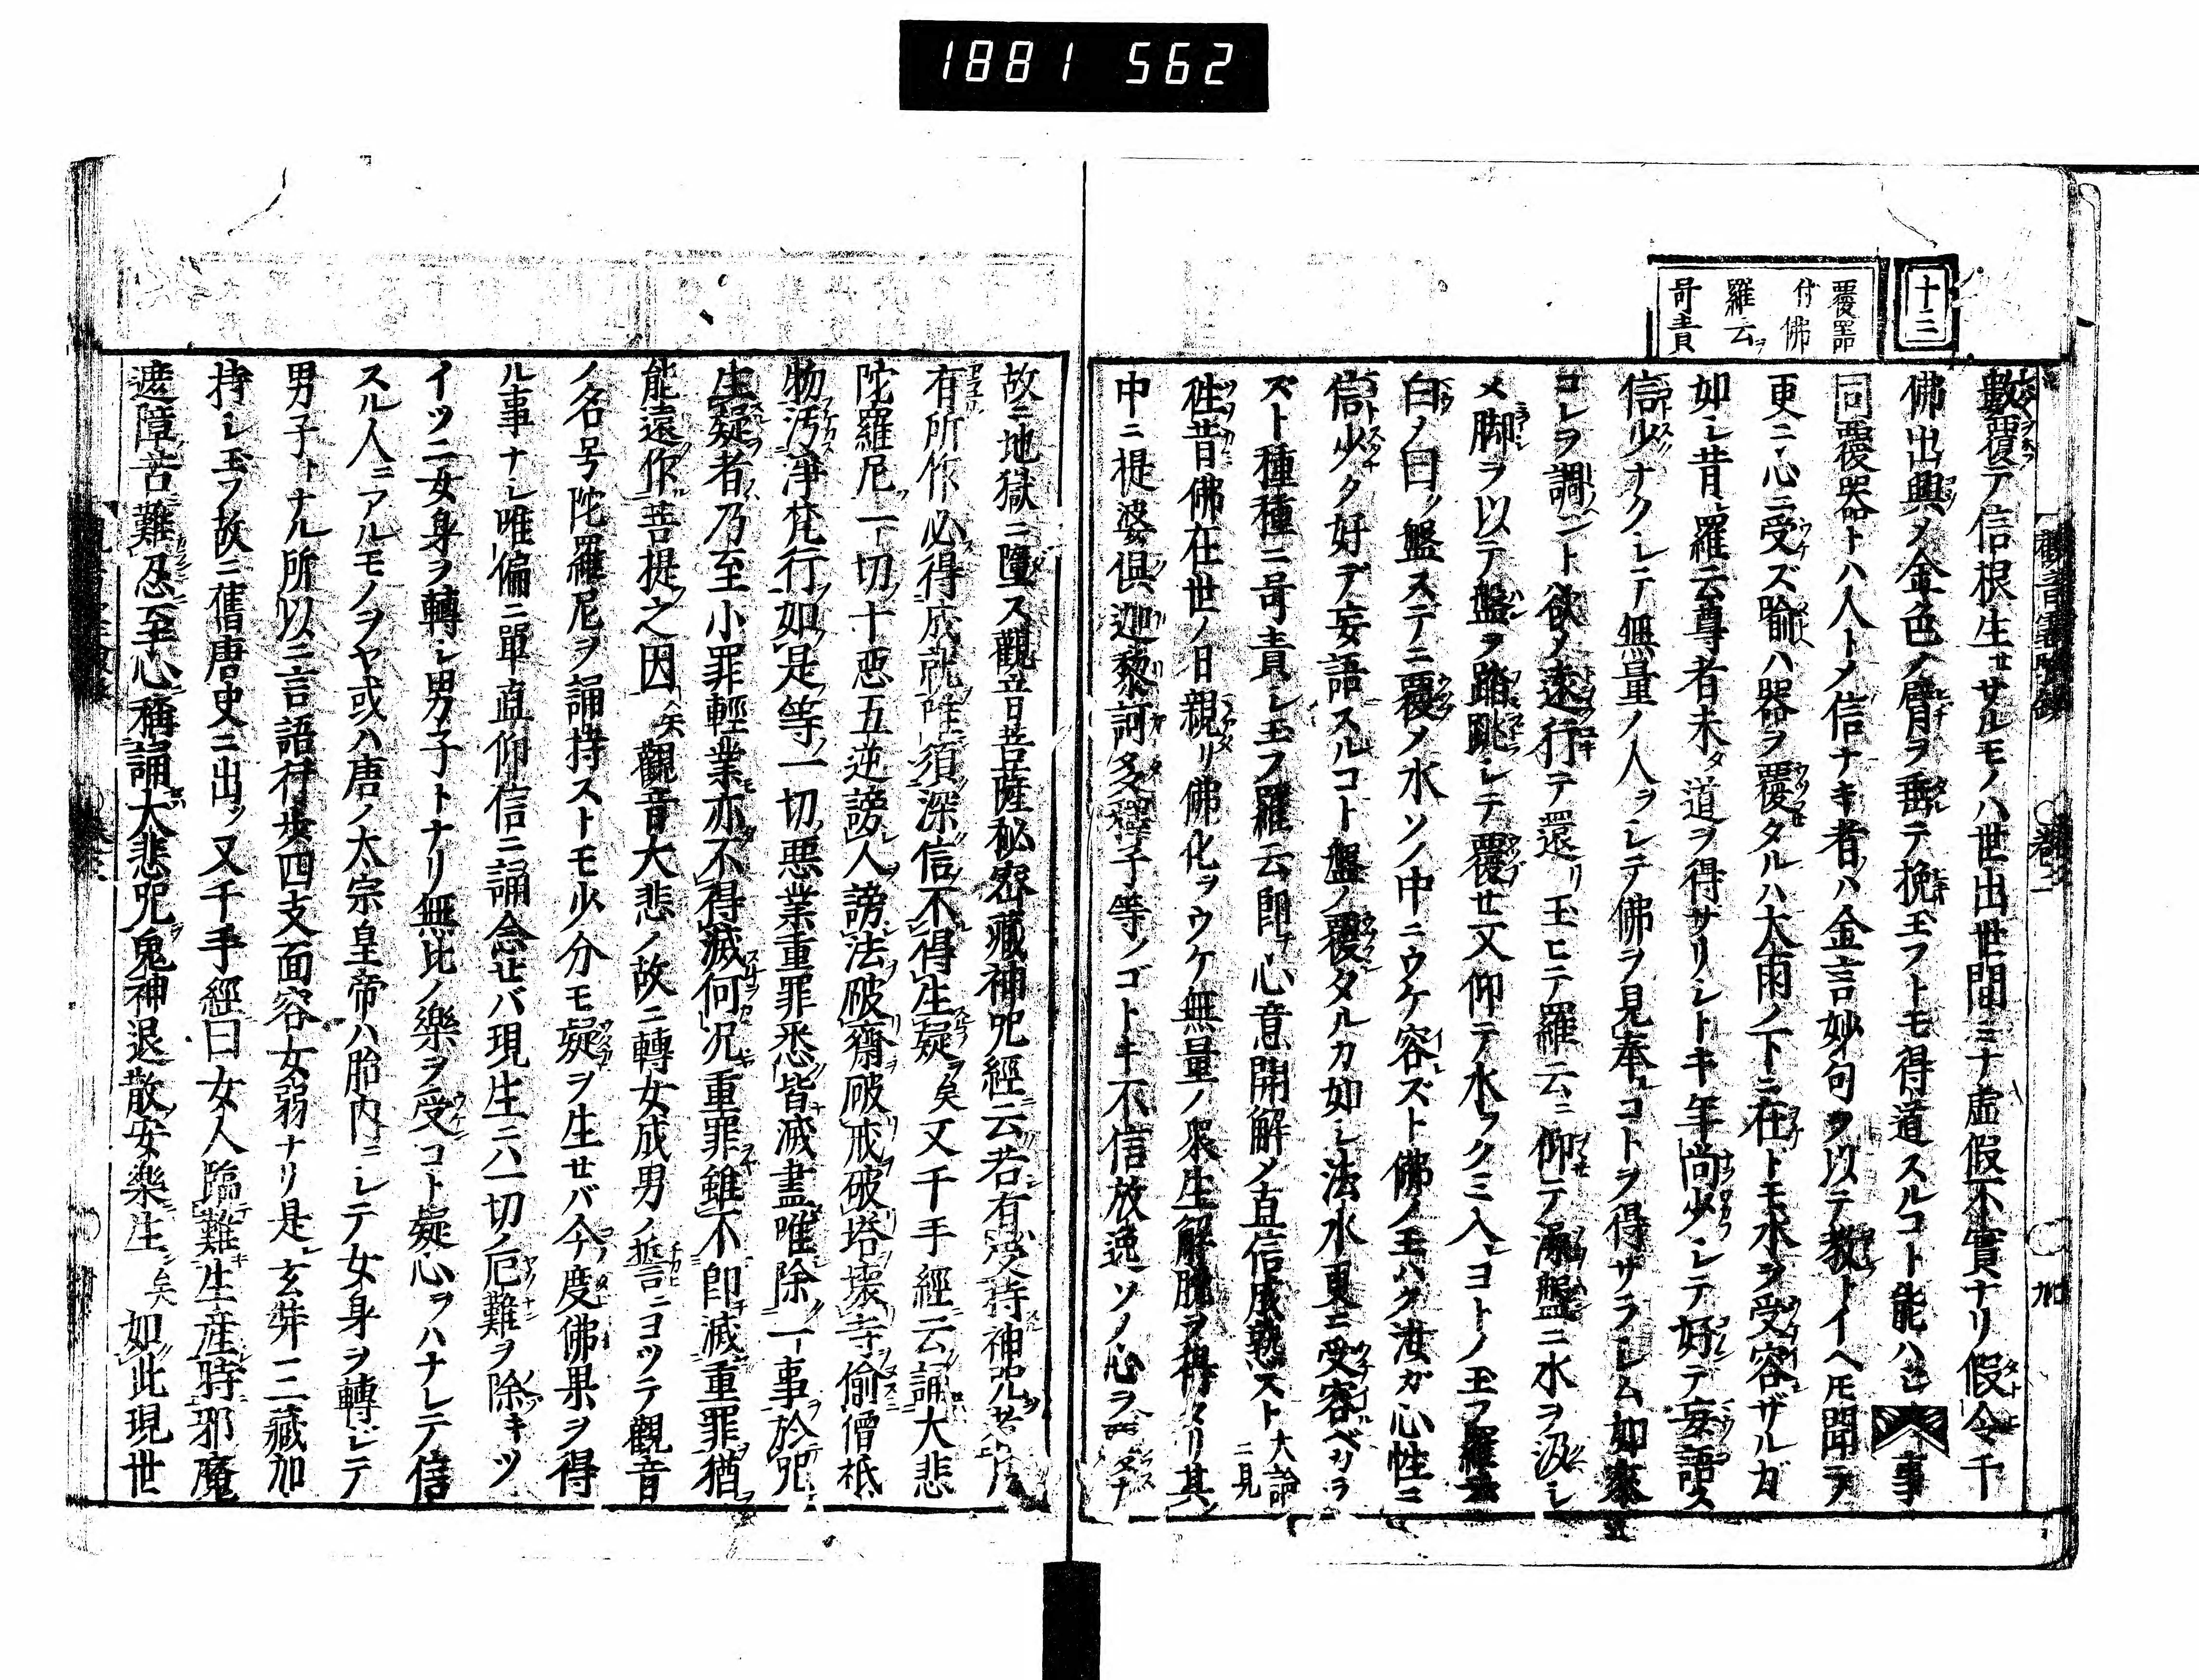 1881 562
十三
覆噐
付佛
羅云ヲ
呵責
數覆テ信根生セサルモノハ世出世間ミナ虚假不實ナリ假令千
佛出興ノ金色ノ臂ヲ垂テ挽玉フトモ得道スルコト能ハ 事
同覆器トハ人トメ信ナキ者ハ金言妙句ヲ以テ教トイヘモ聞テ
更ニ心ニ受ズ喩ハ器ヲ覆タルハ大雨ノ下ニ在トモ水ヲ受容ザルガ
如レ昔羅云尊者未タ道ヲ得サリレトキ年尚少レテ好テ妄語ス
信少ナクレテ無量ノ人ヲレテ佛ヲ見奉コトヲ得ザラレム如來
コレヲ調ント欲ノ遠行テ還リ玉ヒテ羅云ニ仰テ澡盤ニ水ヲ汲レ
メ脚ヲ以テ盤ヲ踏跳レテ覆セ又仰テ水ヲクミ入ヨトノ玉フ羅云
白ノ曰ク盤ステニ覆ノ水ソノ中ニウケ容ズト佛ノ玉ハク汝ガ心性ニ
信少ク好デ妄語スルコト盤ノ覆タルカ如レ法水更ニ受容ベカラ
ズト種種ニ呵責レ玉フ羅云即チ心意開解メ直信成熟スト 大論ニ見
徃昔佛在世ノ日親リ佛化ヲウケ無量ノ衆生解脱ヲ得タリ其
中ニ提婆倶迦黎訶多釋子等ノゴトキ不信放逸ソノ心ヲ
故ニ地獄ニ墮ス觀音菩薩秘密藏神咒經云若有受持神咒者
有所作必得成就唯須深信不得生疑矣又千手經云誦大悲
陀羅尼一切十惡五逆謗人謗法破齋破戒破塔壊寺偷僧祇
物汚淨梵行如是等一切惡業重罪悉皆滅盡唯除一事於咒
生疑者乃至小罪輕業亦不得滅何况重罪雖不即滅重罪猶
能遠作菩提之因矣觀音大悲ノ故ニ轉女成男ノ誓言ニヨツテ觀音
ノ名号陀羅尼ヲ誦持ストモ少分モ疑ヲ生セバ今度佛果ヲ得
ル事ナレ唯偏ニ單直仰信ニ誦念セバ現生ニハ一切ノ厄難ヲ除キツ
イツニ女身ヲ轉レ男子トナリ無比ノ樂ヲ受コト疑心ヲハナレテ信
スル人ニアルモノヲヤ或ハ唐ノ太宗皇帝ハ胎内ニレテ女身ヲ轉レテ
男子トナル所以ニ言語行歩四支面容女弱ナリ是レ玄弉三藏加
持レ玉フ故ニ舊唐史ニ出ッ又千手經曰女人臨難生産時邪魔
遮障苦難忍至心稱誦大悲咒鬼神退散安樂生矣如此現世